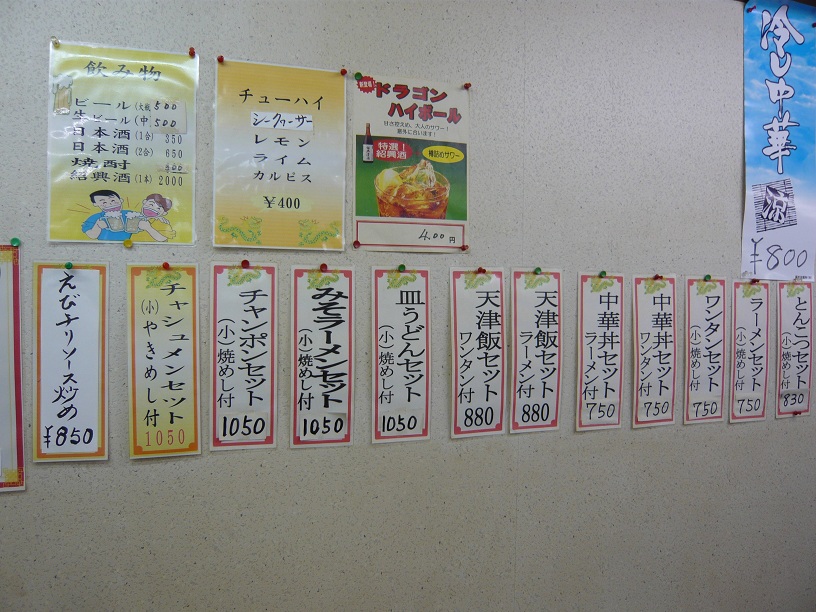 飲み物
ビール(大瓶) 500
生ビール(中) 500
日本酒(1合) 350
日本酒(2合) 650
焼酎
紹興酒(1本) 2000
チューハイ
シークヮーサー
レモン
ライム
カルピス
¥400
ドラゴン
ハイボール
甘さ控えめ、大人のサワー!
意外に合います!
特選!
紹興酒
樽詰めサワー
400円
冷し中華
涼
¥800
えびチリソース炒め
¥850
チャシュメンセット
(小)やきめし付
1050
チャンポンセット
(小)焼めし付
1050
みそラーメンセット
(小)焼めし付
1050
皿うどんセット
(小)焼めし付
1050
天津飯セット
ワンタン付
880
天津飯セット
ラーメン付
880
中華丼セット
ラーメン付
750
中華丼セット
ワンタン付
750
ワンタンセット
(小)焼めし付
750
ラーメンセット
(小)焼めし付
750
とんこつセット
(小)焼めし付
830